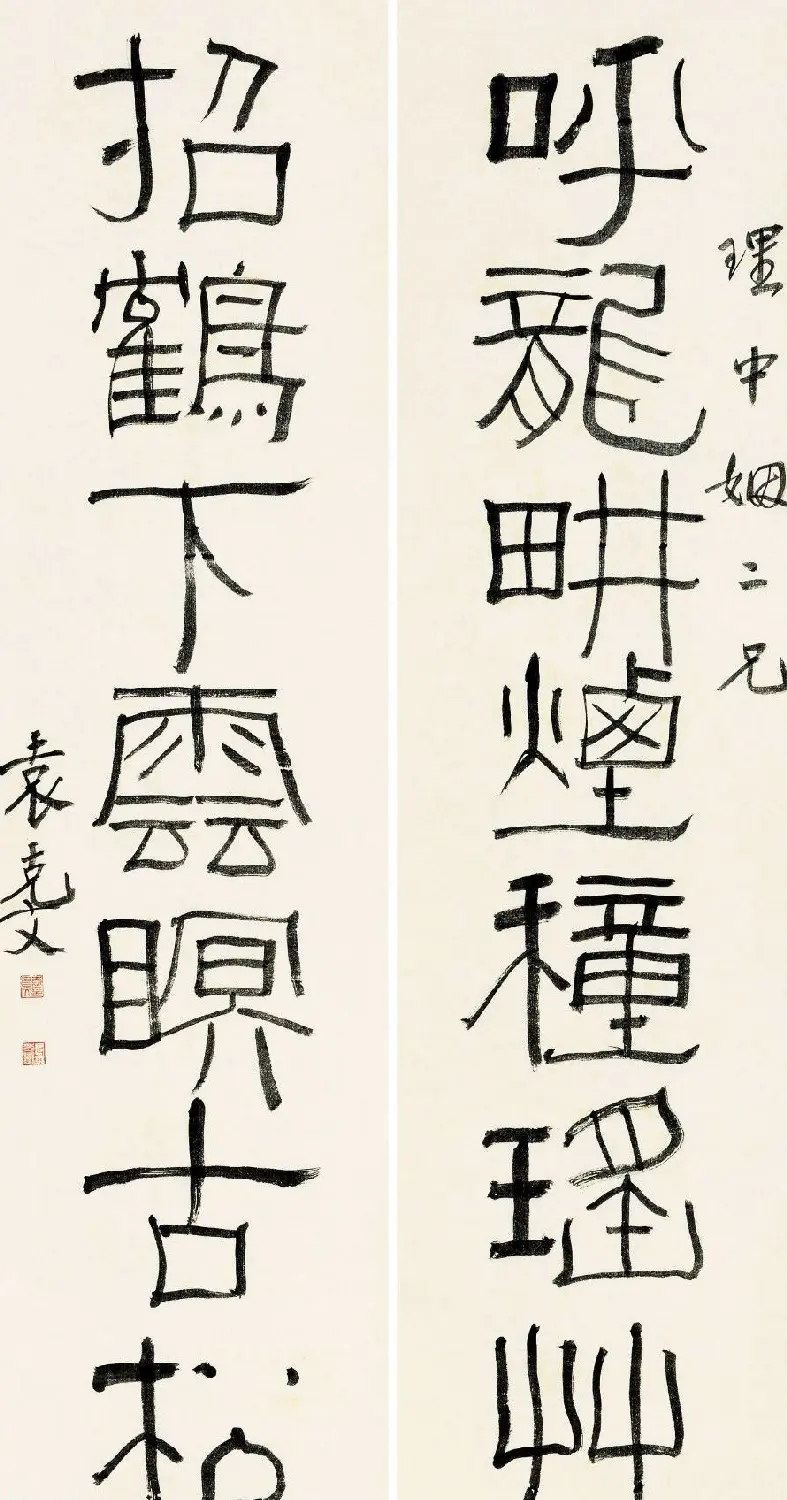 理中姻二兄
呼龍畊煙穜瑤艸
招鶴下雲瞑古松
袁克文